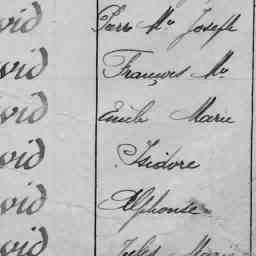 vid Pierre Mie Joseph
vid François Mie
vid Emile Marie
vid Isidore
vid Alphonse
vid Jules Marie